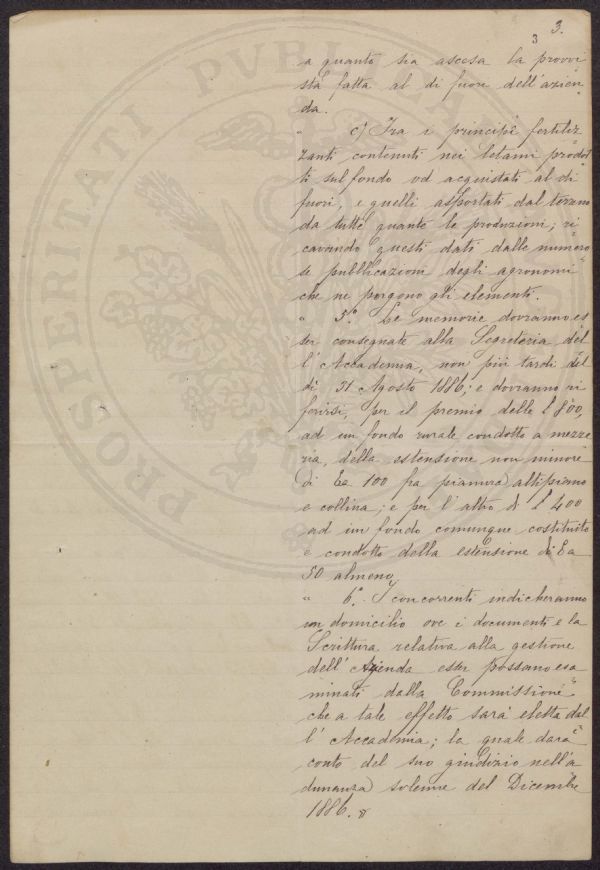 3 3.
a quanto sia ascesa la provvi
sta fatta al di fuori dell'azien
da.
" c) Tra i principî fertiliz
zanti contenuti nei letami prodot
ti sul fondo od acquistati al di
fuori, e quelli asportati dal terreno
da tutte quante le produzioni; ri
cavando questi dati dalle numero
se pubblicazioni degli agronomi
che ne porgono gli elementi.
" 5.° Le memorie dovranno es
ser consegnate alla Segreteria del
l'Accademia, non più tardi del
dì 31 Agosto 1886; e dovranno ri
ferirsi, per il premio delle £ 800,
ad un fondo rurale condotto a mezze
ria, della estensione non minore
di Ea 100 fra pianura, altipiano
e collina; e per l'altro di £ 400
ad un fondo comunque costituito
e condotto della estensione di Ea
50 almeno.
" 6.° I concorrenti indicheranno
un domicilio ove i documenti e la
Scrittura relativa alla gestione
dell'Azienda esser possano esa
minati dalla Commissione
che a tale effetto sarà eletta dal
l'Accademia; la quale darà
conto del suo giudizio nell'a
dunanza solenne del Dicembre
1886.
PROSPERITATI PVBLICAE